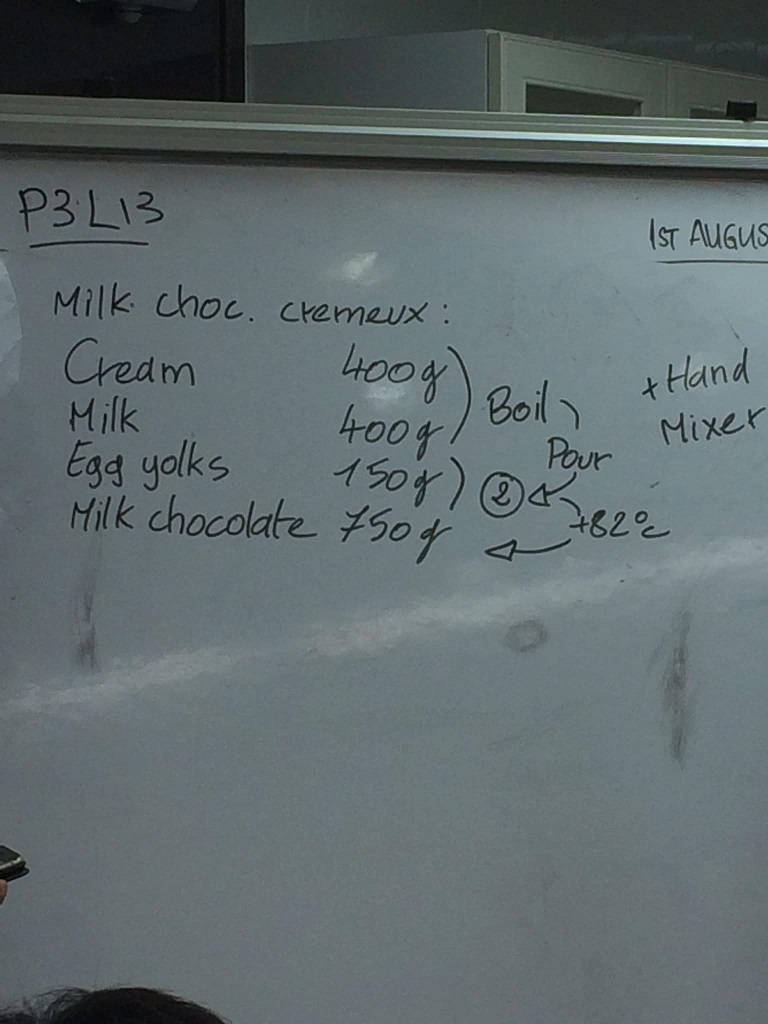 P3L13
1ST AUGUS
Milk choc. cremeux:
Cream 400g
Milk 400g
Boil
+ Hand
Mixer
Egg yolks 150g
Pour
2
Milk chocolate 750g
+82°c